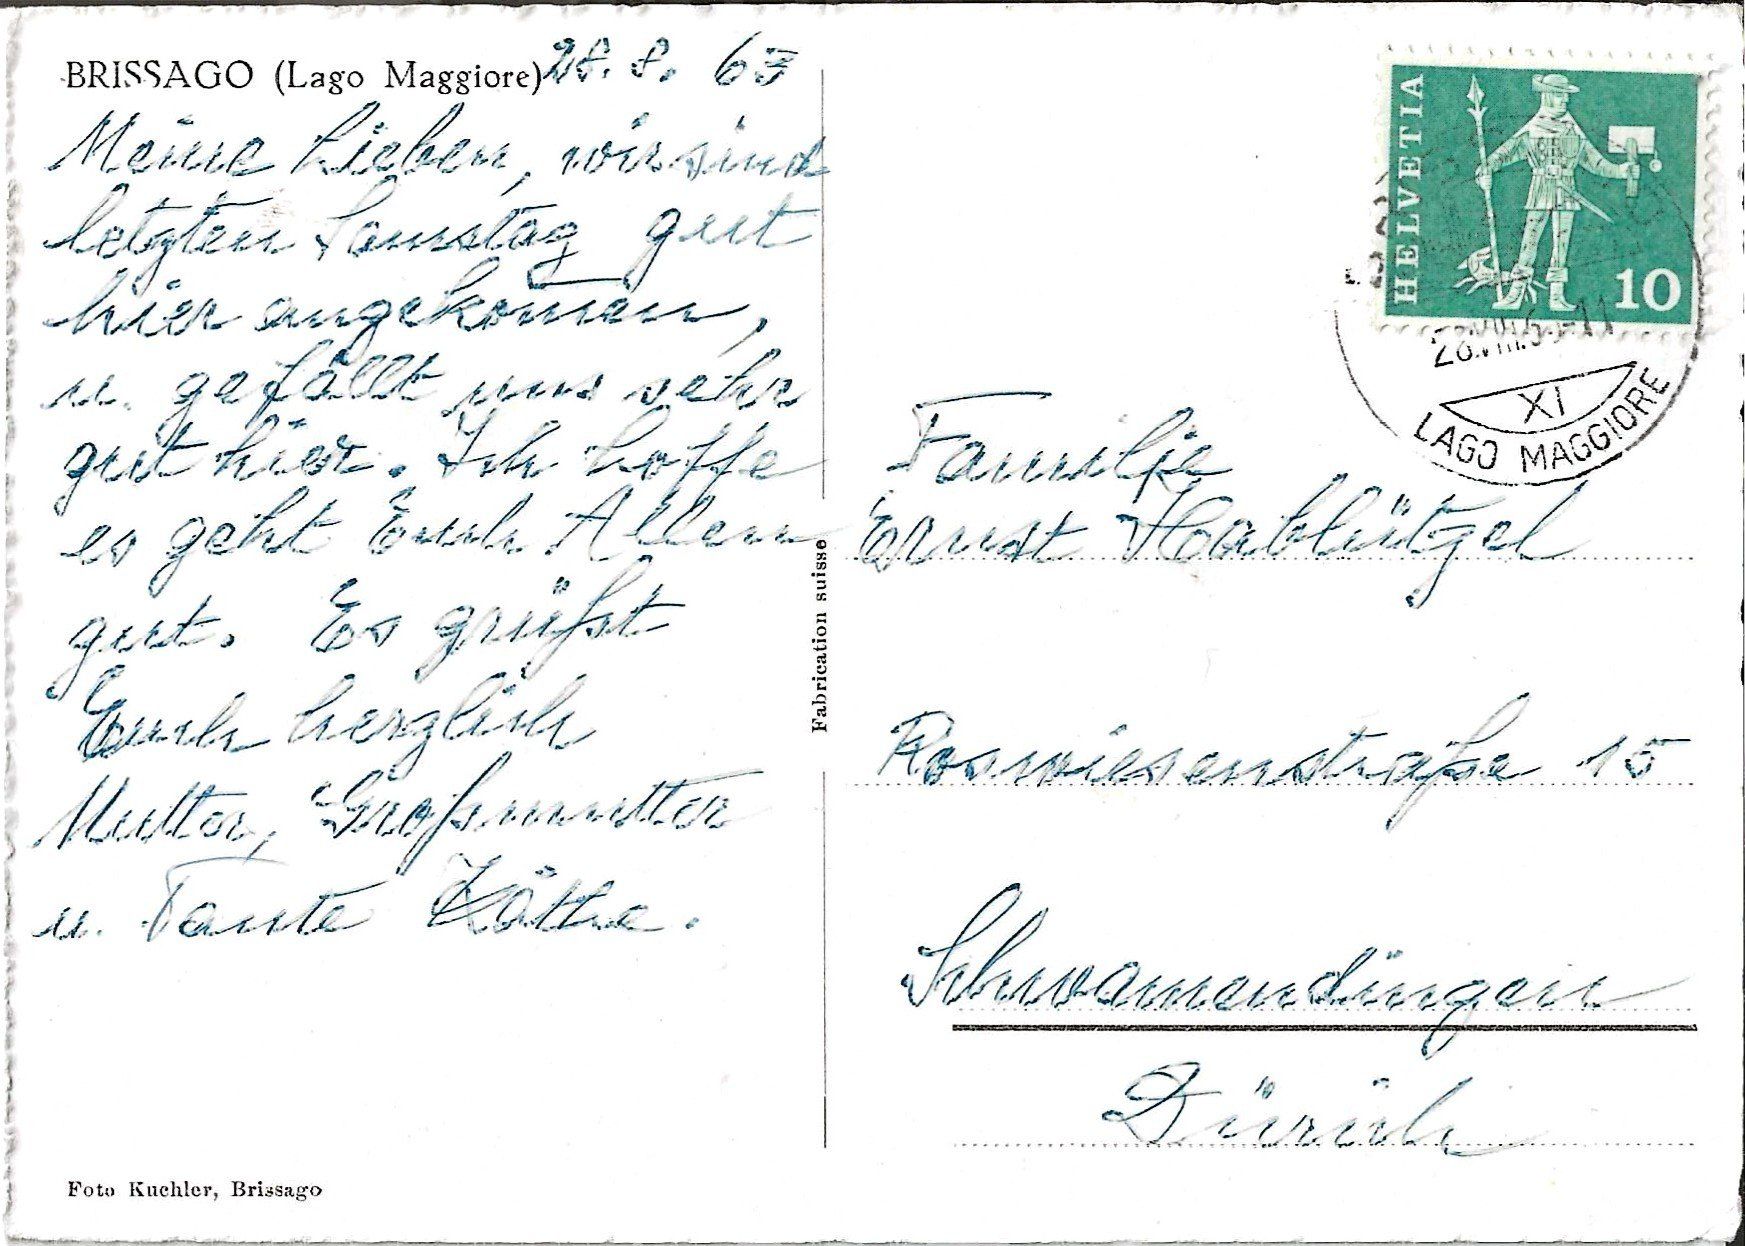 BRISSAGO (Lago Maggiore) 28. 8. 63
Meine Lieben, wir sind
letzten Samstag gut
hier angekomen,
u. gefällt uns sehr
gut hier. Ich hoffe
es geht Euch Allen
gut. Es grüßt
Euch herzlich
Mutter, Großmutter
u. Tante Käthe.
Foto Kuchler, Brissago
Fabrication suisse
HELVETIA
10
28.VIII.63-11
XI
LAGO MAGGIORE
Familie
Ernst Hablützel
Roswiesenstraße 15
Schwamendingen
Zürich